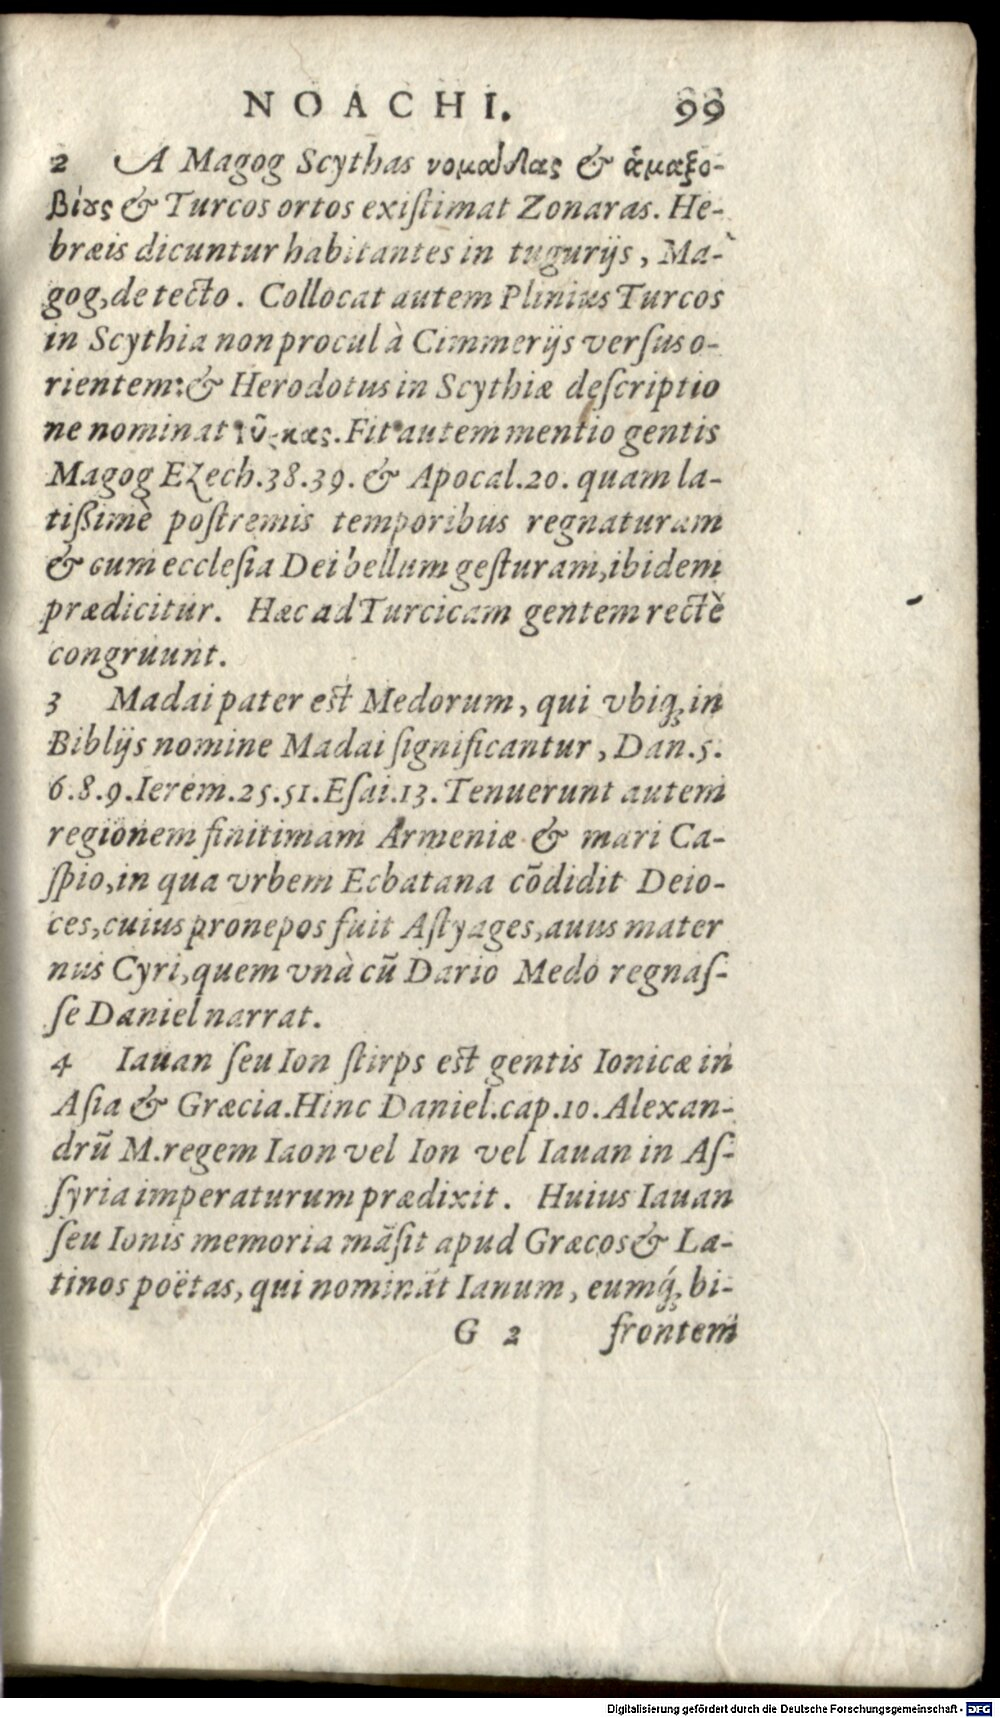 NOACHI. 99
2 A Magog Scythas νομάδας & ἁμαξο-
βίȣς & Turcos ortos exiſtimat Zonaras. He-
bræis dicuntur habitantes in tugurijs, Ma-
gog, de tecto. Collocat autem Plinius Turcos
in Scythia non procul à Cimmerijs verſus o-
rientem: & Herodotus in Scythiæ deſcriptio
ne nominat . Fit autem mentio gentis
Magog Ezech.38.39. & Apocal.20. quam la-
tißimè poſtremis temporibus regnaturam
& cum eccleſia Dei bellum geſturam, ibidem
prædicitur. Hæc ad Turcicam gentem rectè
congruunt.
3 Madai pater est Medorum, qui vbiq; in
Biblijs nomine Madai ſignificantur, Dan.5.
6.8.9.Ierem.25.51.Eſai.13. Tenuerunt autem
regionem finitimam Armeniæ & mari Ca-
ſpio, in qua vrbem Ecbatana cōdidit Deio-
ces, cuius pronepos fuit Aſtyages, auus mater
nus Cyri, quem vnà cū Dario Medo regnaſ-
ſe Daniel narrat.
4 Iauan ſeu Ion ſtirps est gentis Ionicæ in
Aſia & Græcia. Hinc Daniel.cap.10. Alexan-
drū M. regem Iaon vel Ion vel Iauan in Aſ-
ſyria imperaturum prædixit. Huius Iauan
ſeu Ionis memoria māſit apud Græcos & La-
tinos poëtas, qui nomināt Ianum, eumq́; bi-
G 2 frontem
Digitalisierung gefördert durch die Deutsche Forschungsgemeinschaft - DFG